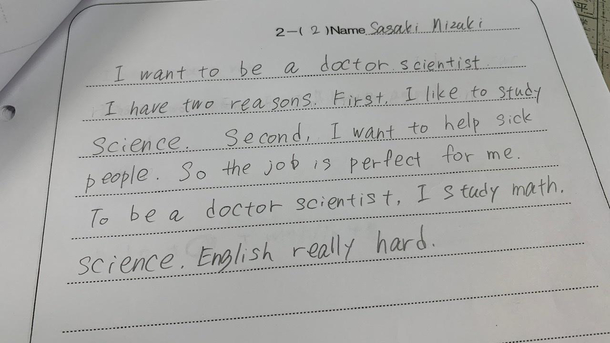 2-(2)Name Sasaki Mizuki
I want to be a doctor scientist
I have two reasons. First, I like to study
Science. Second, I want to help sick
people. So the job is perfect for me.
To be a doctor scientist, I study math.
science. English really hard.